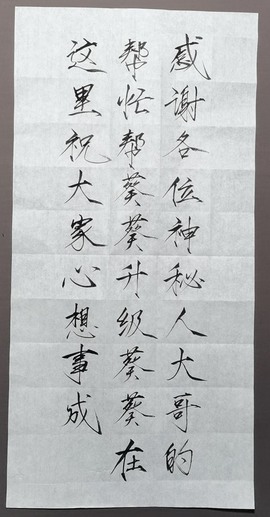 感谢各位神秘人大哥的
帮忙帮葵葵升级葵葵在
这里祝大家心想事成